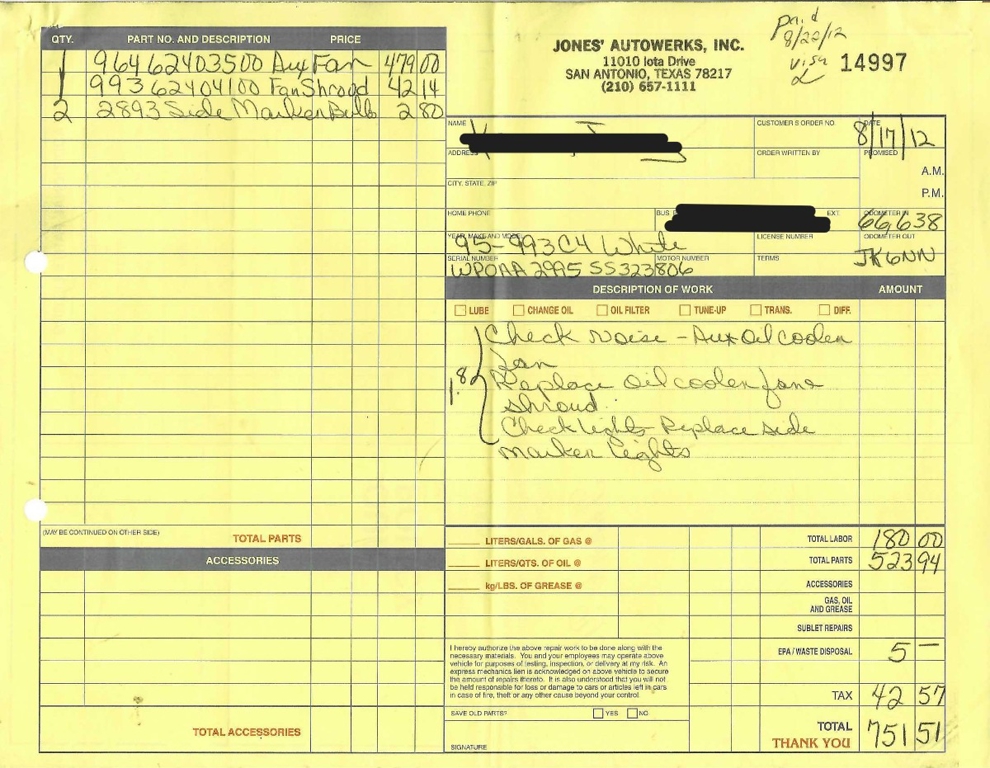 QTY. PART NO. AND DESCRIPTION PRICE
1 964 624 035 00 Aux Fan 479 00
1 993 624 041 00 Fan Shroud 42 14
2 2893 Side Marker Bulb 2 80
(MAY BE CONTINUED ON OTHER SIDE) TOTAL PARTS
ACCESSORIES
TOTAL ACCESSORIES
JONES' AUTOWERKS, INC.
11010 Iota Drive
SAN ANTONIO, TEXAS 78217
(210) 657-1111
Pd
8/22/12
Visa
14997
NAME CUSTOMER'S ORDER NO. DATE 8/17/12
ADDRESS ORDER WRITTEN BY PROMISED
A.M.
CITY, STATE, ZIP P.M.
HOME PHONE BUS. EXT. ODOMETER IN 66,638
YEAR, MAKE AND MODEL 95-993 C4 White LICENSE NUMBER ODOMETER OUT
SERIAL NUMBER WPOAA 2995 SS323806 MOTOR NUMBER TERMS JK6NN
DESCRIPTION OF WORK AMOUNT
LUBE CHANGE OIL OIL FILTER TUNE-UP TRANS. DIFF.
Check noise - Aux Oil cooler
fan
1.8 Replace Oil cooler fan &
shroud
Check lights Replace side
marker lights
LITERS/GALS. OF GAS @ TOTAL LABOR 180 00
LITERS/QTS. OF OIL @ TOTAL PARTS 523 94
kg/LBS. OF GREASE @ ACCESSORIES
GAS, OIL
AND GREASE
SUBLET REPAIRS
I hereby authorize the above repair work to be done along with the
necessary materials. You and your employees may operate above
vehicle for purposes of testing, inspection, or delivery at my risk. An
express mechanics lien is acknowledged on above vehicle to secure
the amount of repairs thereto. It is also understood that you will not
be held responsible for loss or damage to cars or articles left in cars
in case of fire, theft or any other cause beyond your control.
EPA / WASTE DISPOSAL 5 —
TAX 42 57
SAVE OLD PARTS? YES NO
TOTAL 751 51
THANK YOU
SIGNATURE